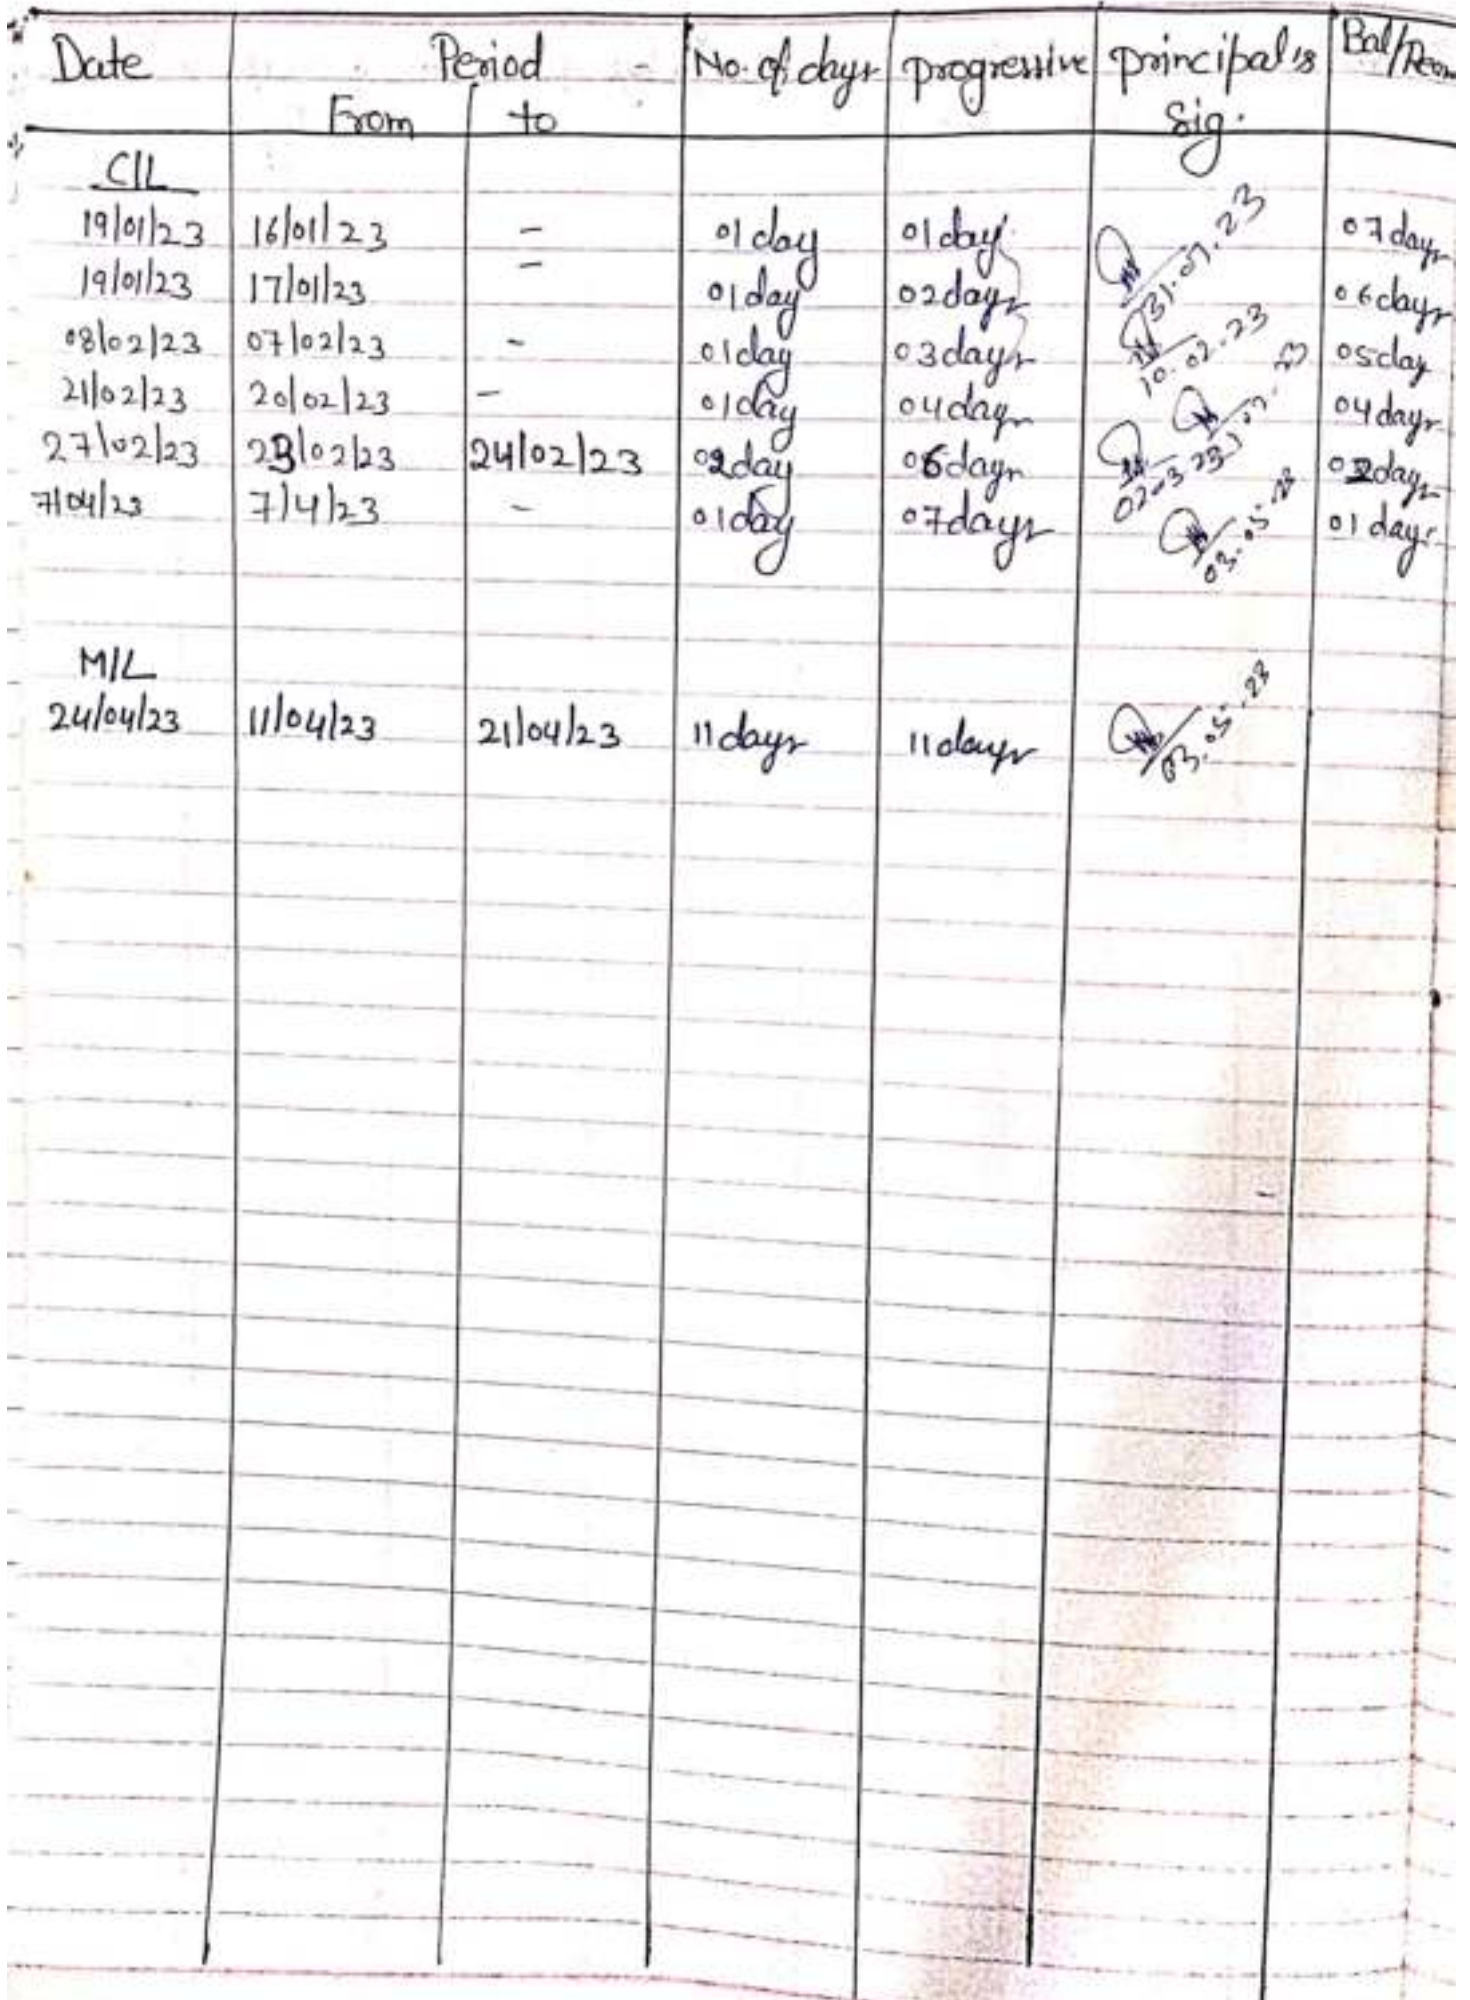 Date Period No. of days progressive principal's Bal/
From to Sig.
C/L
19/01/23 16/01/23 - 01 day 01 day 31.01.23 07 days
19/01/23 17/01/23 - 01 day 02 days 06 days
08/02/23 07/02/23 - 01 day 03 days 10.02.23 05 day
21/02/23 20/02/23 - 01 day 04 days 04 days
27/02/23 23/02/23 24/02/23 02 day 06 days 02 days
7/04/23 7/4/23 - 01 day 07 days 03.05.23 01 day
M/L
24/04/23 11/04/23 21/04/23 11 days 11 days 03.05.23